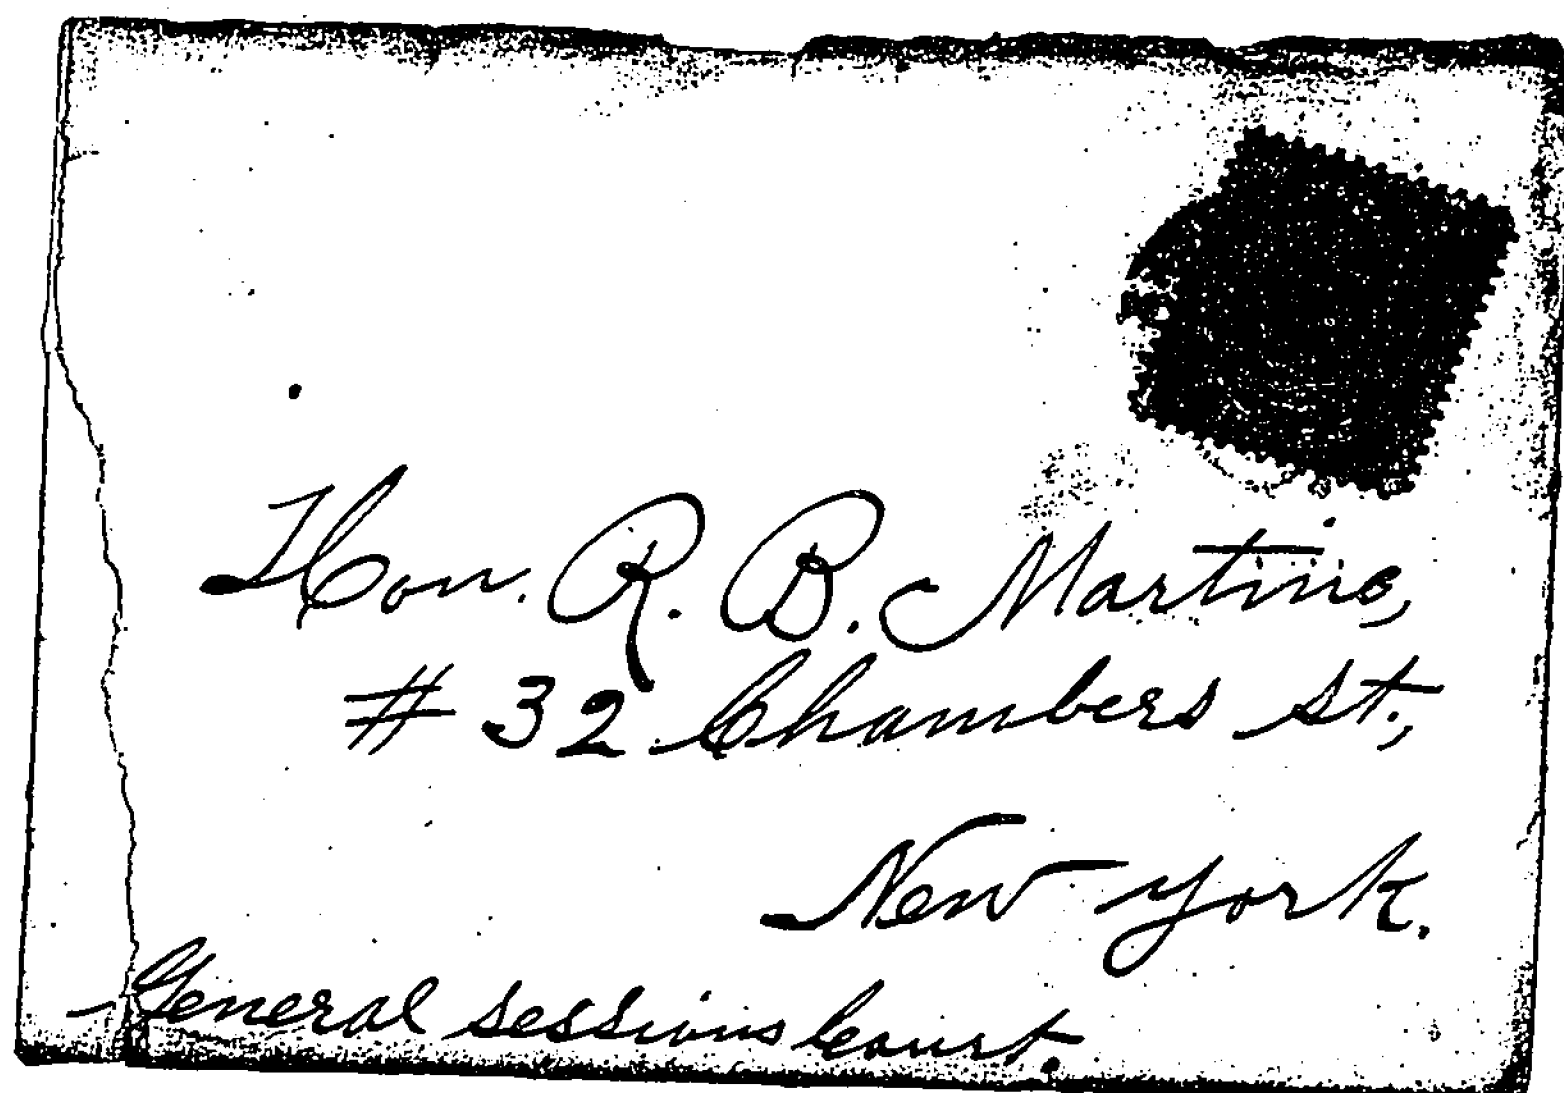 Hon. R. B. Martine,
# 32 Chambers st.,
New York.
General Sessions Court.